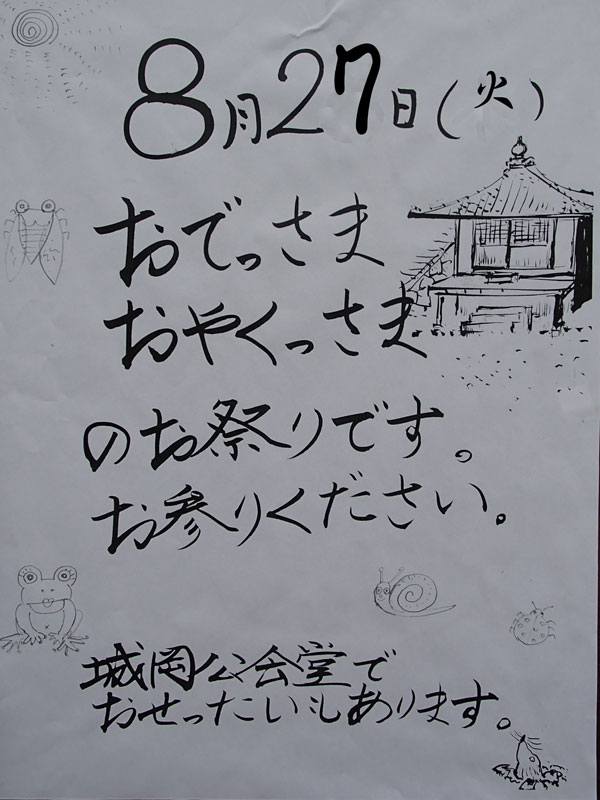 8月27日(火)
おでっさま
おやくっさま
のお祭りです。
お参りください。
城岡公会堂で
おせったいもあります。